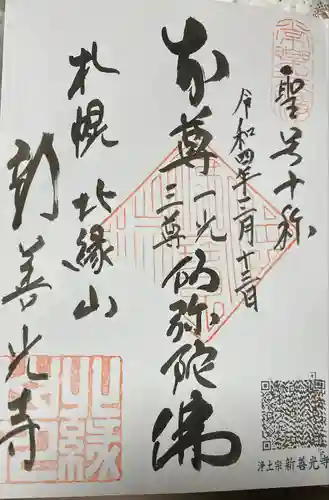 聖号十称
令和四年二月十三日
本尊 一光三尊 阿弥陀佛
札幌 北縁山
新善光寺
浄土宗 新善光寺